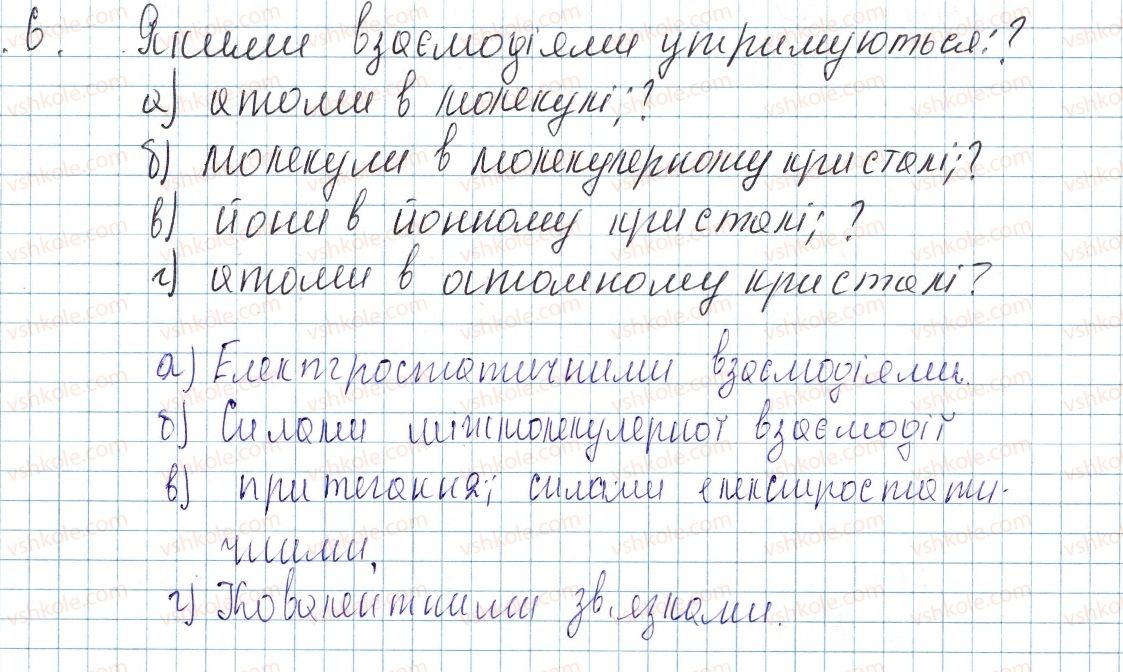 6. Якими взаємодіями утримуються:?
а) атоми в молекулі;?
б) молекули в молекулярному кристалі;?
в) йони в йонному кристалі; ?
г) атоми в атомному кристалі?
а) Електростатичними взаємодіями.
б) Силами міжмолекулярної взаємодії
в) притягання; силами електростати-
чними.
г) Ковалентними зв'язками.